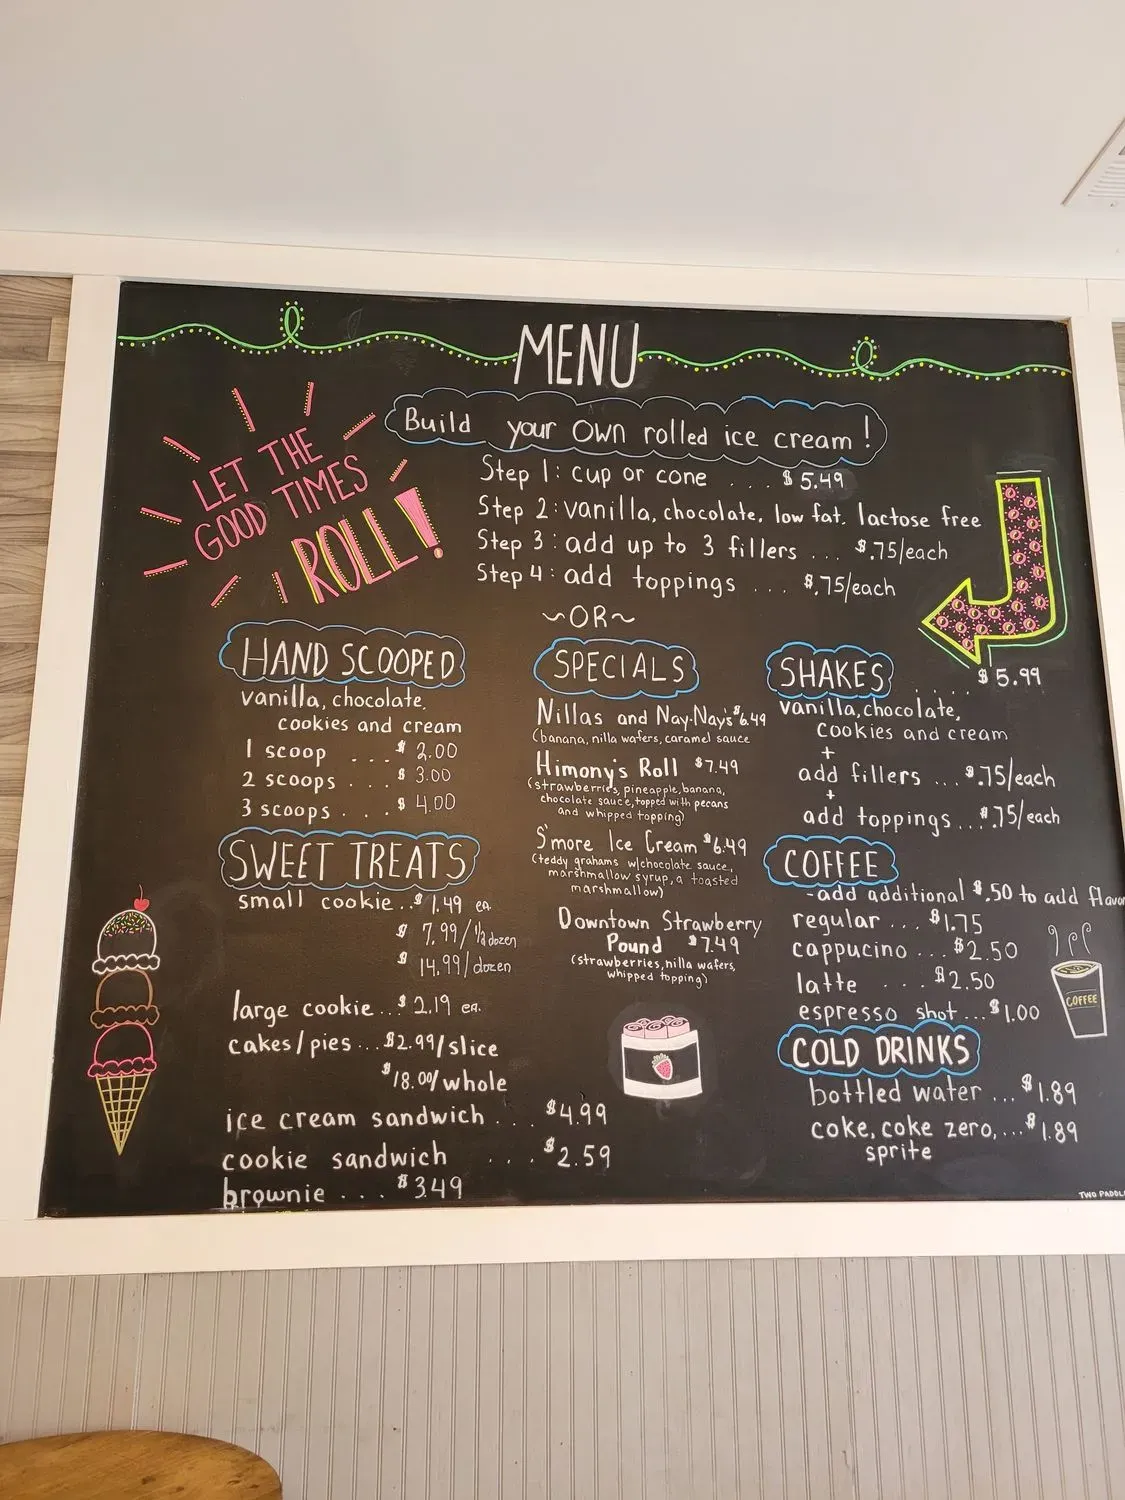 MENU
LET THE
GOOD TIMES
ROLL!
Build your OWN rolled ice cream!
Step 1: cup or cone ... $5.49
Step 2: vanilla, chocolate, low fat, lactose free
Step 3: add up to 3 fillers ... $.75/each
Step 4: add toppings ... $.75/each
~OR~
HAND SCOOPED
vanilla, chocolate,
cookies and cream
1 scoop ... $2.00
2 scoops ... $3.00
3 scoops ... $4.00
SWEET TREATS
small cookie..$1.49 ea.
$7.99/½ dozen
$14.99/dozen
large cookie...$2.19 ea.
cakes/pies...$2.99/slice
$18.00/whole
ice cream sandwich... $4.99
cookie sandwich ... $2.59
brownie ... $3.49
SPECIALS
Nillas and Nay-Nay's $6.49
(banana, nilla wafers, caramel sauce
Himony's Roll $7.49
(strawberries, pineapple, banana,
chocolate sauce, topped with pecans
and whipped topping)
S'more Ice Cream $6.49
(teddy grahams w/chocolate sauce,
marshmallow syrup, a toasted
marshmallow)
Downtown Strawberry
Pound $7.49
(strawberries, nilla wafers,
whipped topping)
SHAKES .... $5.99
vanilla, chocolate,
cookies and cream
+
add fillers ... $.75/each
+
add toppings... $.75/each
COFFEE
-add additional $.50 to add flavor
regular ... $1.75
cappucino ... $2.50
latte ... $2.50
espresso shot ... $1.00
COFFEE
COLD DRINKS
bottled water ... $1.89
coke, coke zero, ... $1.89
sprite
TWO PADDL